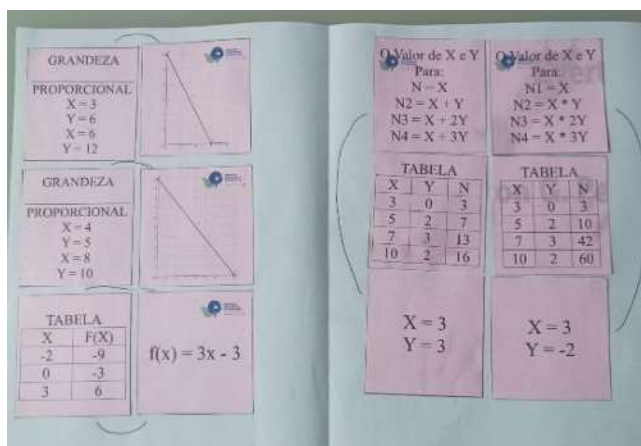 GRANDEZA
PROPORCIONAL
X = 3
Y = 6
X = 6
Y = 12
GRANDEZA
PROPORCIONAL
X = 4
Y = 5
X = 8
Y = 10
TABELA
X F(X)
-2 -9
0 -3
3 6
f(x) = 3x - 3
O Valor de X e Y
Para:
N = X
N2 = X + Y
N3 = X + 2Y
N4 = X + 3Y
TABELA
X Y N
3 0 3
5 2 7
7 3 13
10 2 16
X = 3
Y = 3
O Valor de X e Y
Para:
N1 = X
N2 = X * Y
N3 = X * 2Y
N4 = X * 3Y
TABELA
X Y N
3 0 3
5 2 10
7 3 42
10 2 60
X = 3
Y = -2